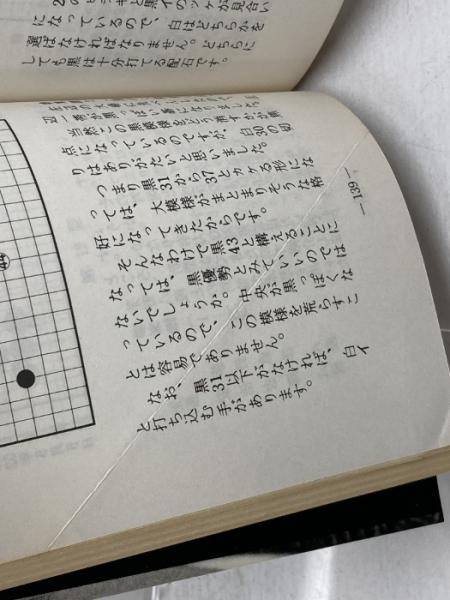 のヒラキと黒イのツケが見合い
になっているので、白はどちらかを
選ばなければなりません。どちらに
しても黒は十分打てる配石です。
辺一帯が黒っぽい
当然この黒模様をどう消すかが焦
点になっているのですが、白30の切
りはありがたいと思いました。
つまり黒31から37とカケる形にな
っては、大模様がまとまりそうな格
好になってきたからです。
そんなわけで黒43と構えることに
なっては、黒優勢とみていいのでは
ないでしょうか。中央が黒っぽくな
っているので、この模様を荒らすこ
とは容易でありません。
なお、黒31以下がなければ、白イ
と打ち込む手があります。
—139—
44